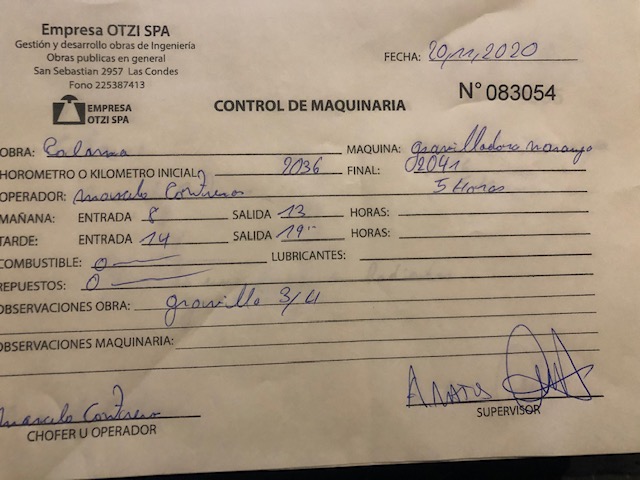 Empresa OTZI SPA
Gestión y desarrollo obras de Ingeniería
Obras públicas en general
San Sebastian 2957 Las Condes
Fono 225387413
FECHA: 20,11,2020
EMPRESA
OTZI SPA
CONTROL DE MAQUINARIA
N° 083054
OBRA: MAQUINA: naranja
HOROMETRO O KILOMETRO INICIAL: 2036 FINAL: 02041
OPERADOR: Contreras 5 Horas
MAÑANA: ENTRADA 8 SALIDA 13 HORAS:
TARDE: ENTRADA 14 SALIDA 19 HORAS:
COMBUSTIBLE: 0 LUBRICANTES:
REPUESTOS: 0
OBSERVACIONES OBRA: gravilla 3/4
OBSERVACIONES MAQUINARIA:
Contreras
CHOFER U OPERADOR SUPERVISOR